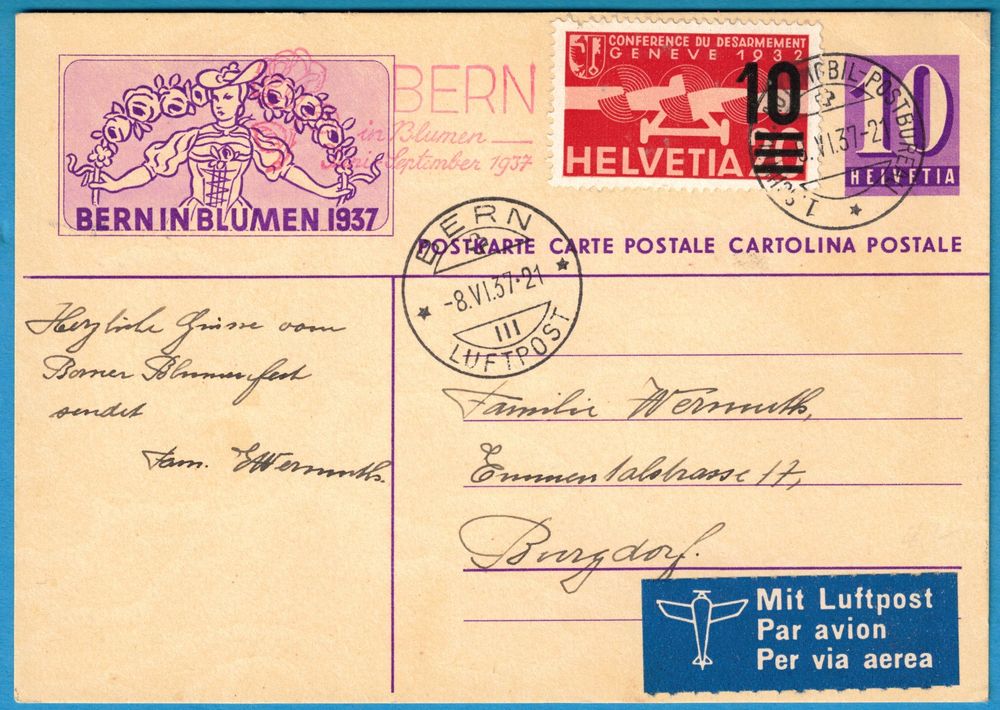 BERN IN BLUMEN 1937
BERN
in Blumen
Juni-September 1937
CONFERENCE DU DESARMEMENT
GENEVE 1932
10
HELVETIA 20
AUTOMOBIL-POSTBUREAU
8.VI.37-21
1
10
HELVETIA
POSTKARTE CARTE POSTALE CARTOLINA POSTALE
BERN
-8.VI.37·21
III
LUFTPOST
Herzliche Grüsse vom
Berner Blumenfest
sendet
Fam. E Wermuth.
Familie Wermuth,
Emmentalstrasse 17,
Burgdorf.
Mit Luftpost
Par avion
Per via aerea